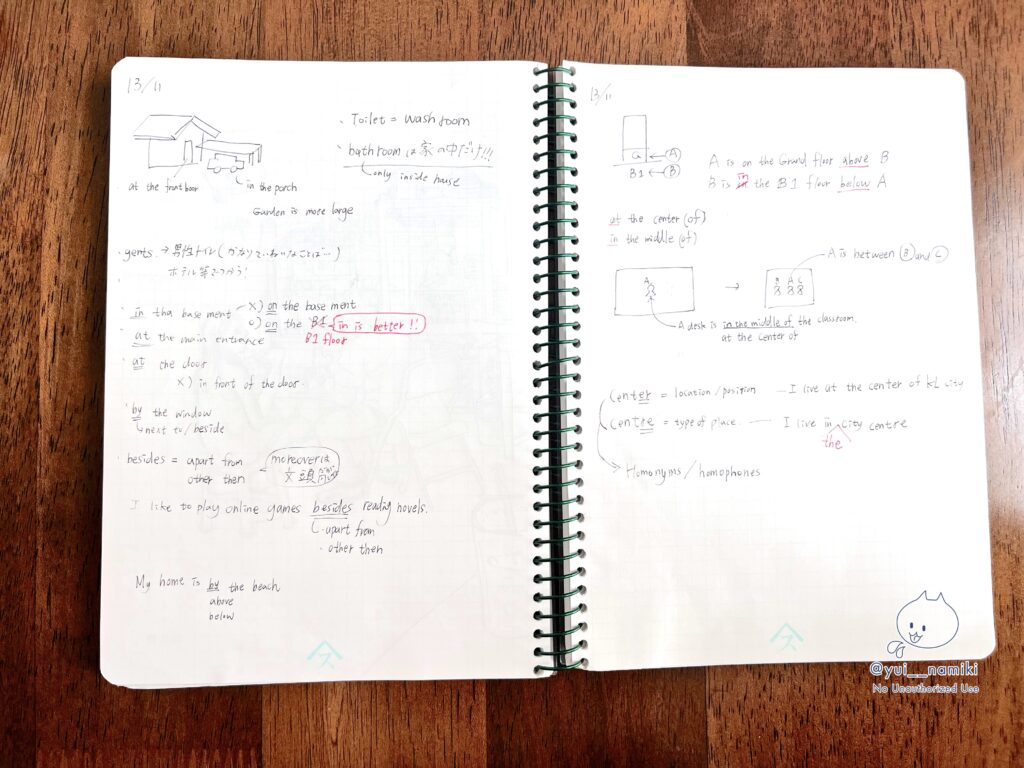 13/11
at the front boor
in the porch
Garden is more large
. Toilet = wash room
bathroom は 家の中だけ!!!
only inside house
. gents → 男性トイレ (かなりていねいなことば…)
ホテル等でつかう!
in tha base ment
x) on the base ment
o) on the B1
in is better!!
B1 floor
at the main entrance
at the door
x) in front of the door
by the window
next to / beside
besides = apart from
other then
moreover は
文頭
I like to play online games besides readig novels.
. apart from
. other then
My home is by the beach
above
below
13/11
G
A
B1
B
A is on the Grand floor above B
B is in the B1 floor below A
at the center (of)
in the middle (of)
A
B A C
A is between B and C
A desk is in the middle of the classroom.
at the center of
center = location / position — I live at the center of KL city
centre = type of place — I live in city centre
the
Homonyms / homophones
@yui__namiki
No Unauthorized Use